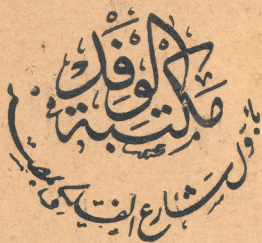 مكتبة الوفد
بأول شارع الفلكي بمصر